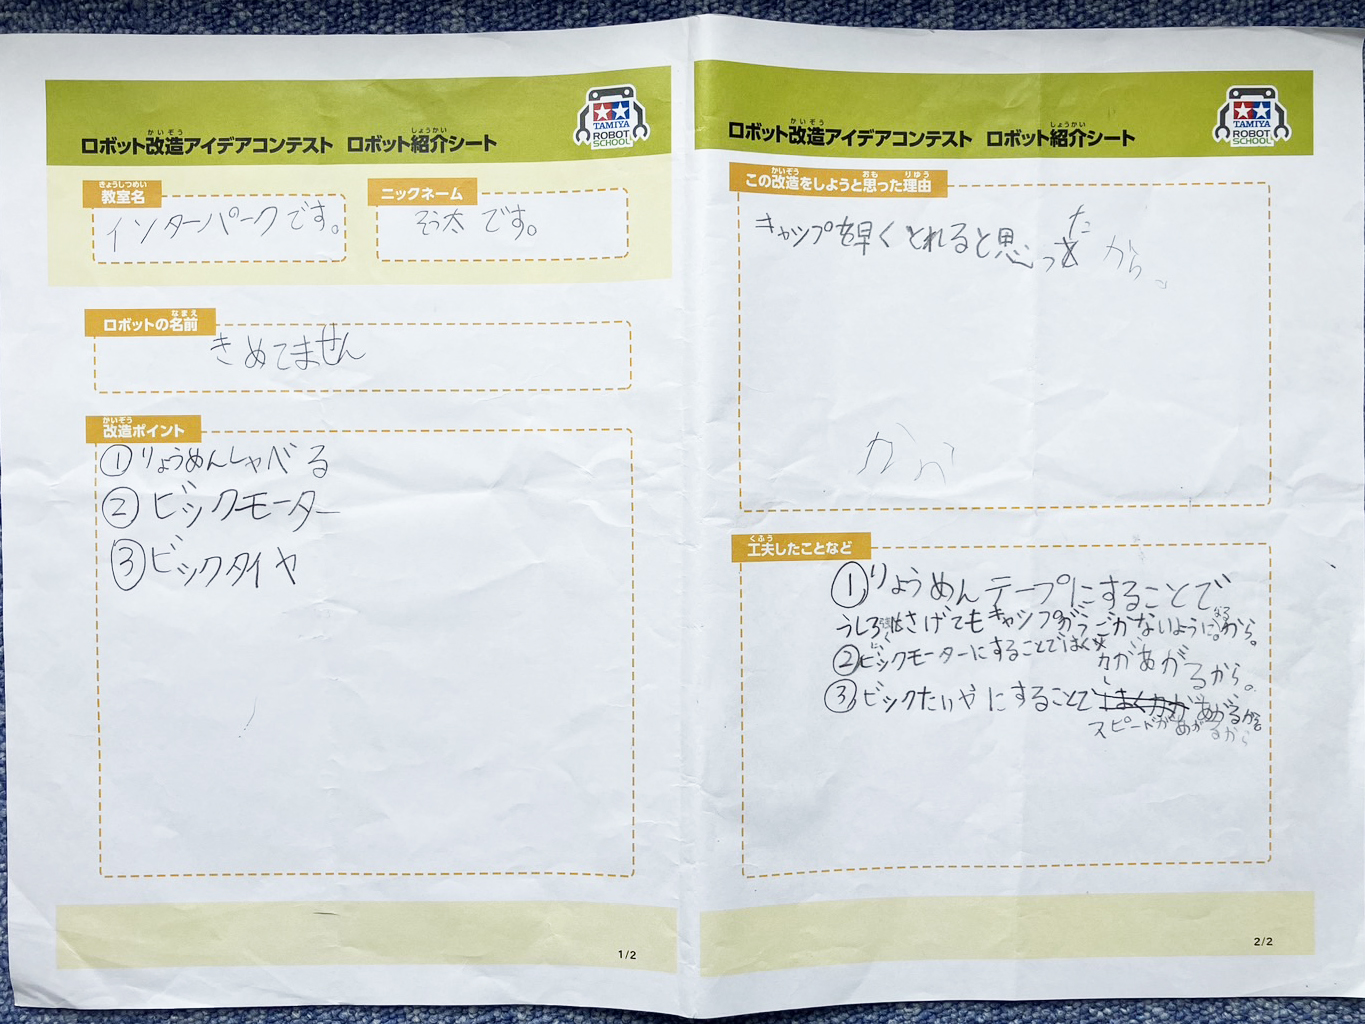 かいぞう しょうかい
ロボット改造アイデアコンテスト ロボット紹介シート
TAMIYA
ROBOT
SCHOOL
きょうしつめい
教室名
インターパークです。
ニックネーム
そう太 です。
なまえ
ロボットの名前
きめてません
かいぞう
改造ポイント
①りょうめんしゃべる
②ビックモーター
③ビックタイヤ
1/2
かいぞう しょうかい
ロボット改造アイデアコンテスト ロボット紹介シート
TAMIYA
ROBOT
SCHOOL
かいぞう おも りゆう
この改造をしようと思った理由
キャップを早くとれると思っ
た
から。
から
くふう
工夫したことなど
①りょうめんテープにすることで
うしろにさげてもキャップがうごかないように。なるから。
②ビックモーターにすることではく力があがるから。
③ビックたいやにすることで
スピードがあがるから
2/2